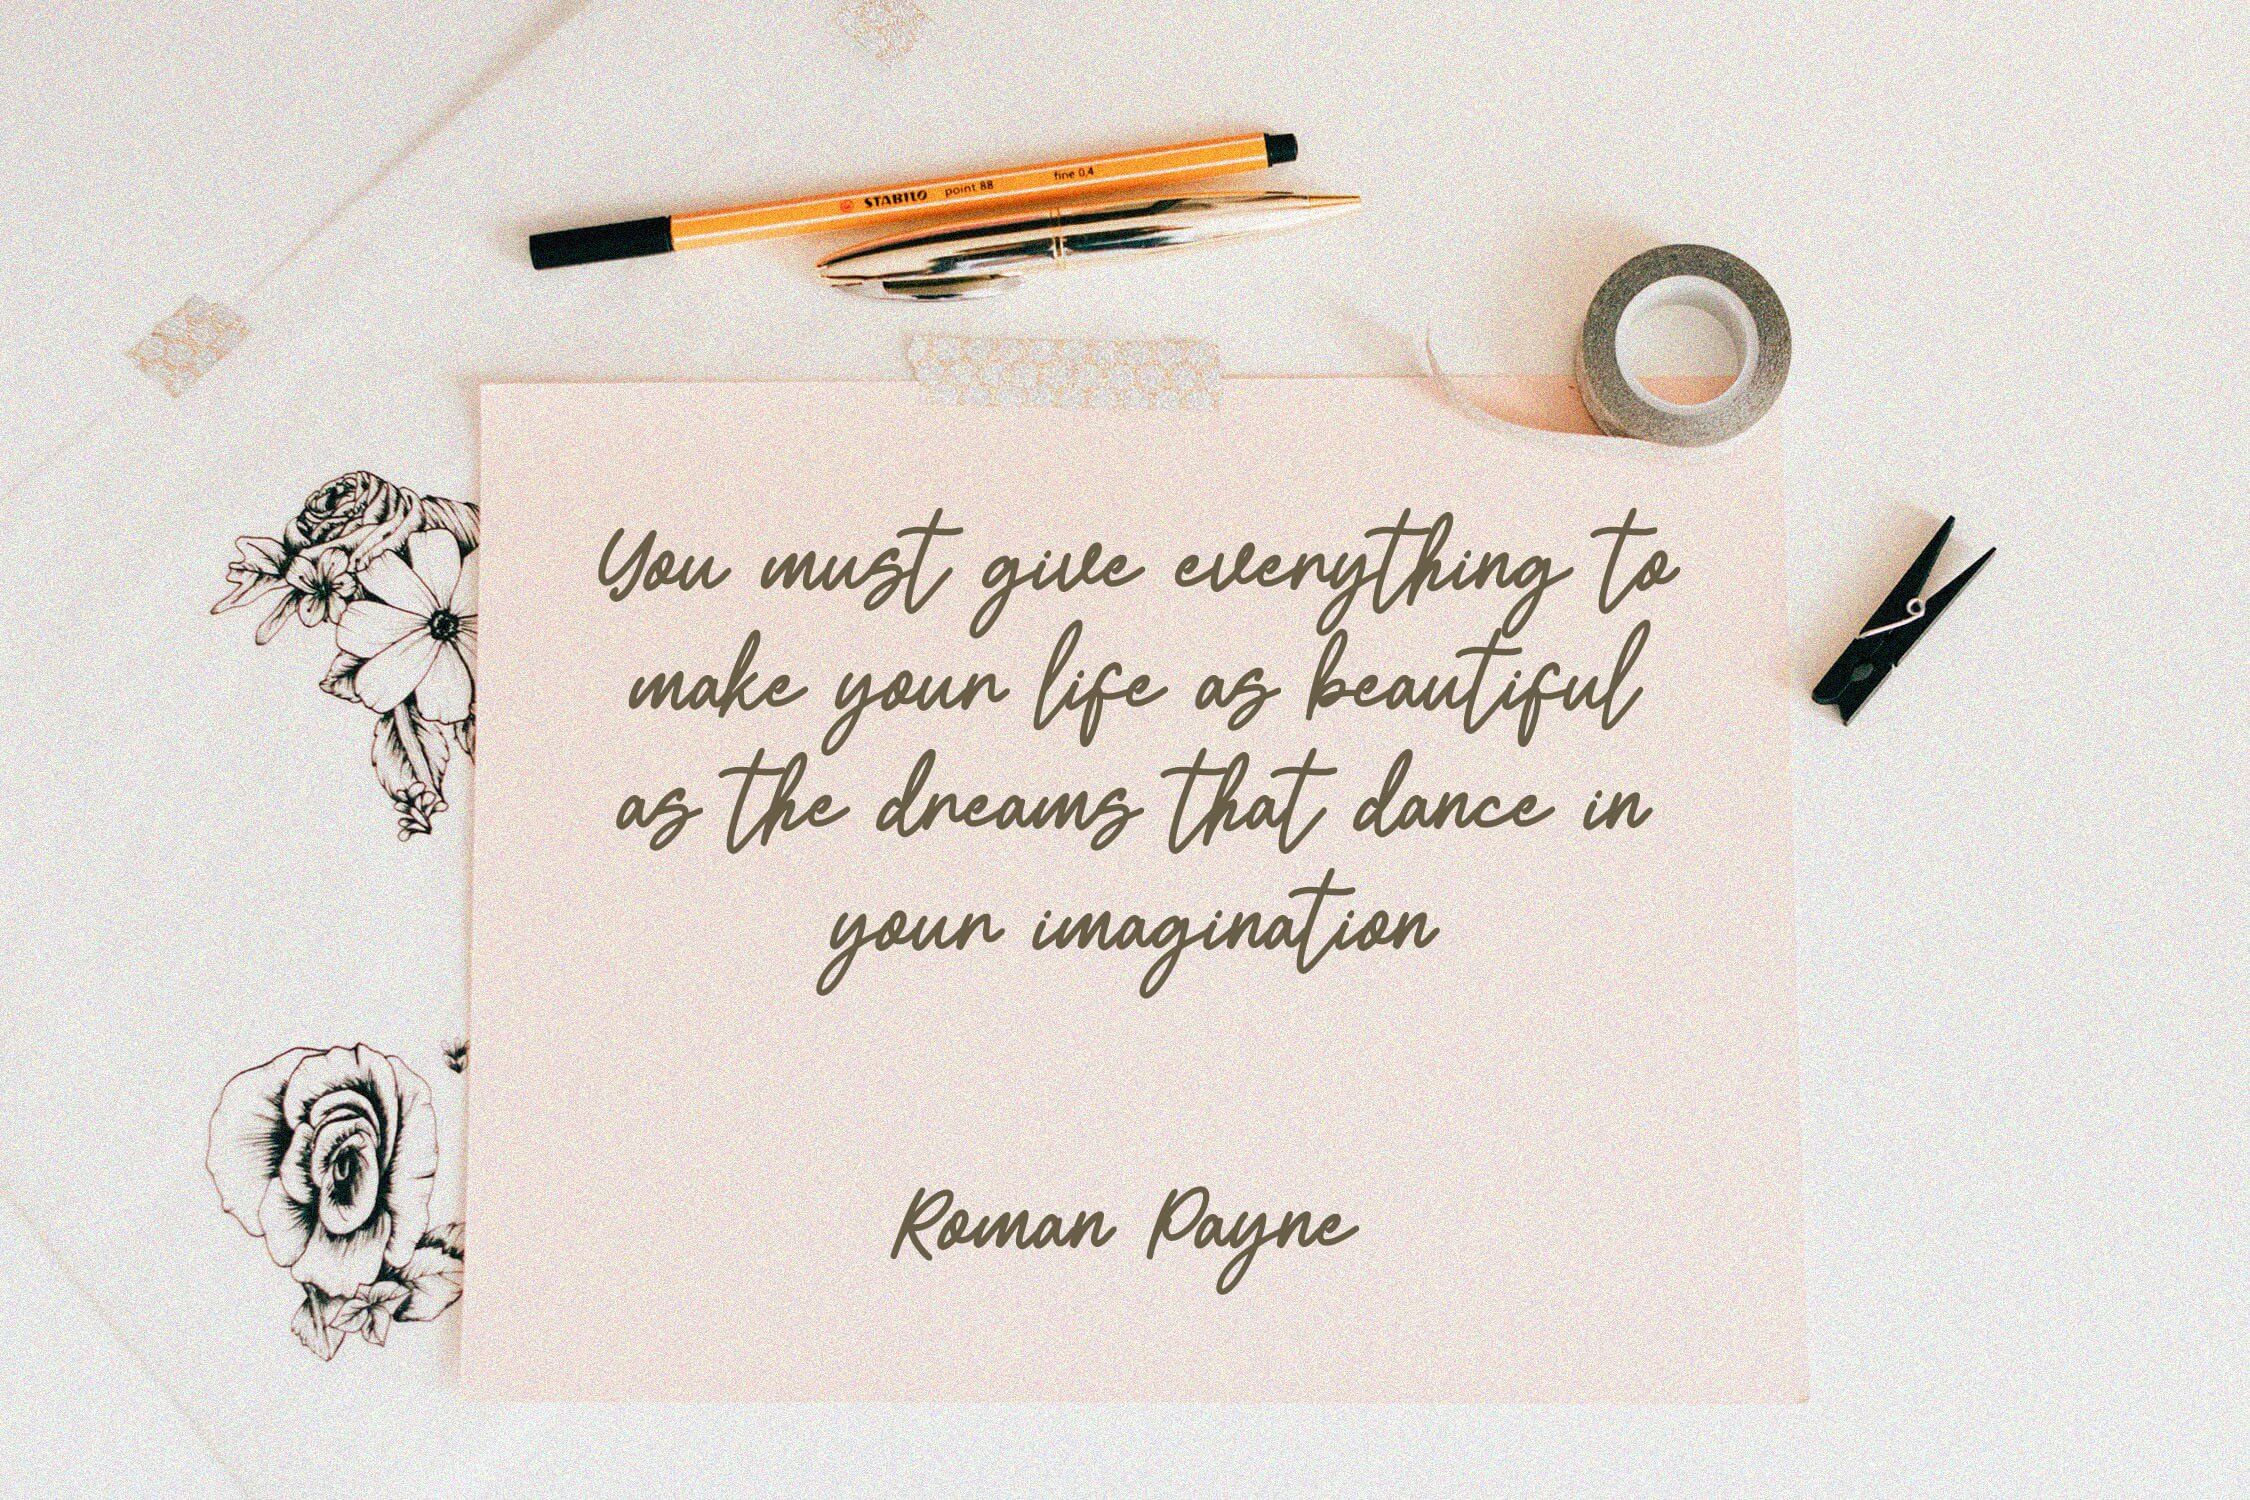 STABILO point 88 fine 0,4
You must give everything to
make your life as beautiful
as the dreams that dance in
your imagination
Roman Payne